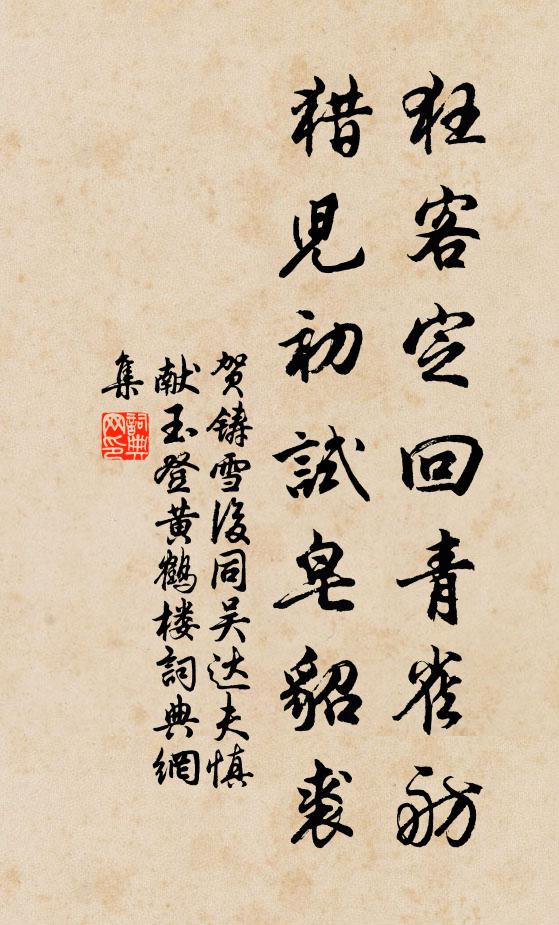 狂客定回青雀舫
猎児初試皂貂裘
贺鑄雪後同吴达夫慎
献玉登黄鶴楼詞典網
集
詞典网印